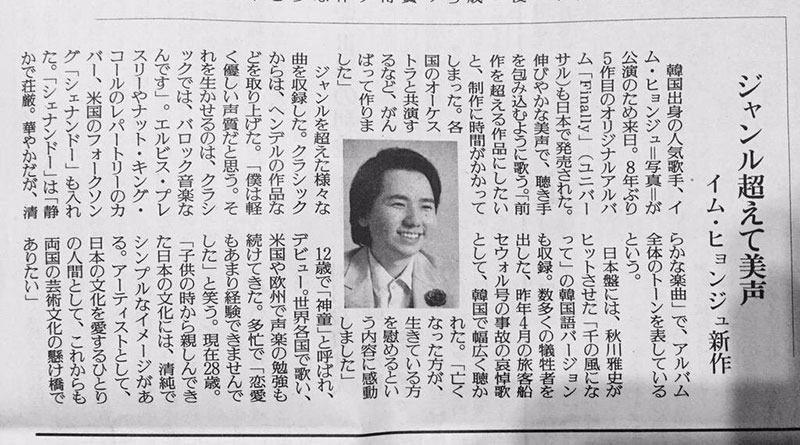 ジャンル超えて美声
イム・ヒョンジュ新作
韓国出身の人気歌手、イ
ム・ヒョンジュ＝写真＝が
公演のため来日。８年ぶり
５作目のオリジナルアルバ
ム「Finally」（ユニバー
サル）も日本で発売された。
伸びやかな美声で、聴き手
を包み込むように歌う。「前
作を超える作品にしたい
と、制作に時間がかかって
しまった。各
国のオーケス
トラと共演す
るなど、がん
ばって作りま
した」
ジャンルを超えた様々な
曲を収録した。クラシック
からは、ヘンデルの作品な
どを取り上げた。「僕は軽
く優しい声質だと思う。そ
れを生かせるのは、クラシ
ックでは、バロック音楽な
んです」。エルビス・プレ
スリーやナット・キング・
コールのレパートリーのカ
バー、米国のフォークソン
グ「シェナンドー」も入れ
た。「シェナンドー」は「静
かで荘厳。華やかだが、清
らかな楽曲」で、アルバム
全体のトーンを表している
という。
日本盤には、秋川雅史が
ヒットさせた「千の風にな
って」の韓国語バージョン
も収録。数多くの犠牲者を
出した、昨年４月の旅客船
セウォル号の事故の哀悼歌
として、韓国で幅広く聴か
れた。「亡く
なった方が、
生きている方
を慰めるとい
う内容に感動
しました」
12歳で「神童」と呼ばれ、
デビュー。世界各国で歌い、
米国や欧州で声楽の勉強も
続けてきた。多忙で「恋愛
もあまり経験できませんで
した」と笑う。現在28歳。
「子供の時から親しんでき
た日本の文化には、清純で
シンプルなイメージがあ
る。アーティストとして、
日本の文化を愛するひとり
の人間として、これからも
両国の芸術文化の懸け橋で
ありたい」